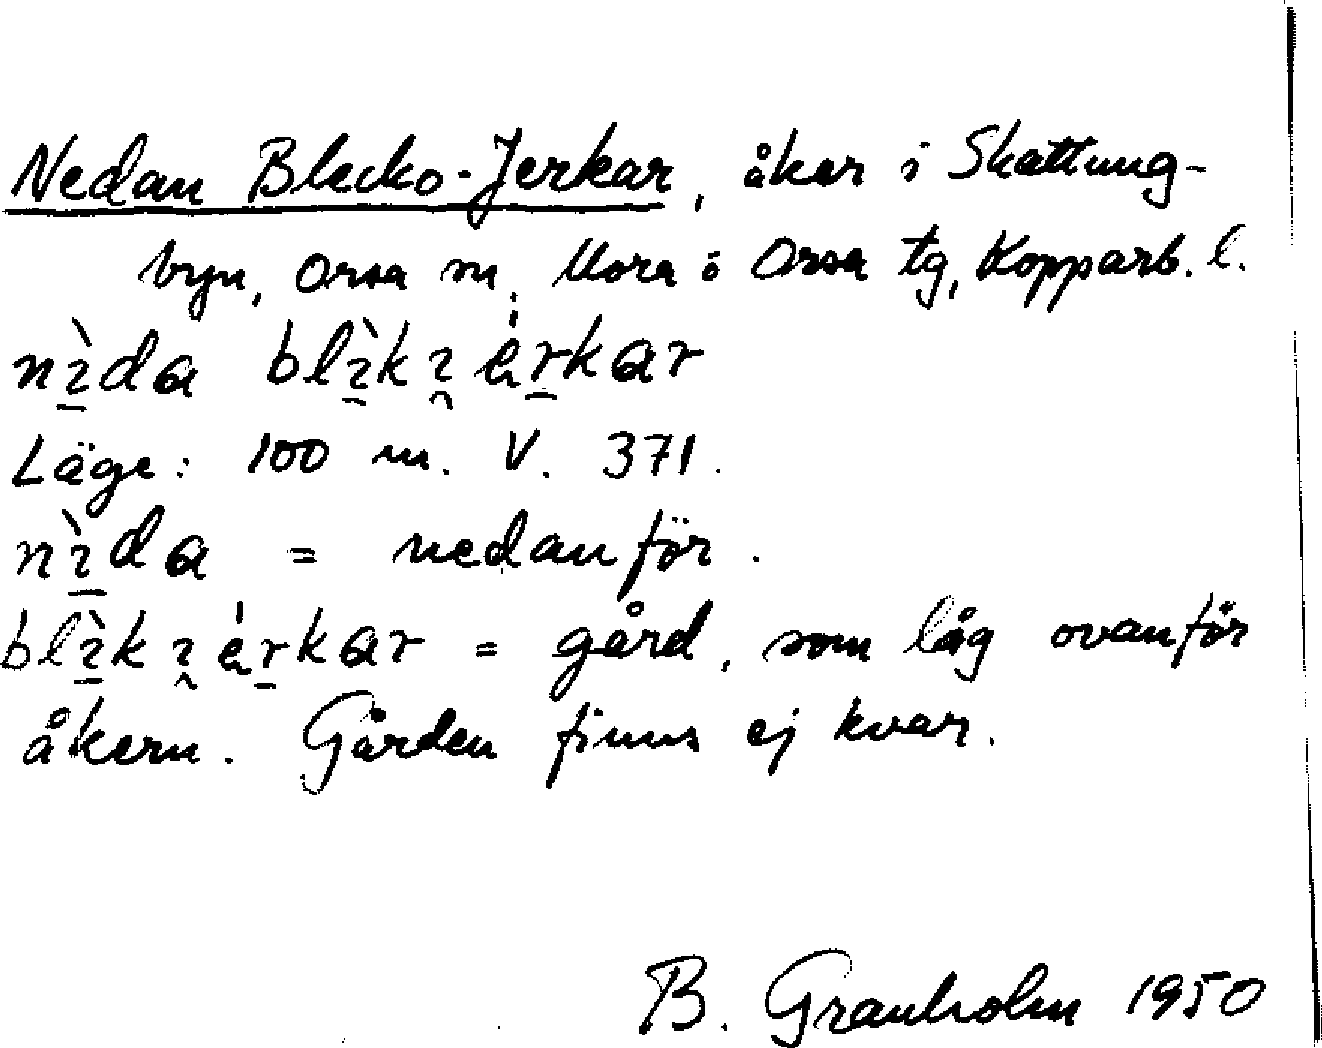 Nedan Blecko-Jerkar, åker i Skattung-
byn, Orsa sn, Mora o Orsa tg, Kopparb. l.
nìda blìkɿérkar
Läge: 100 m. V. 371.
nìda = nedanför.
blìkɿérkar = gård, som låg ovanför
åkern. Gården finns ej kvar.
B. Granholm 1950